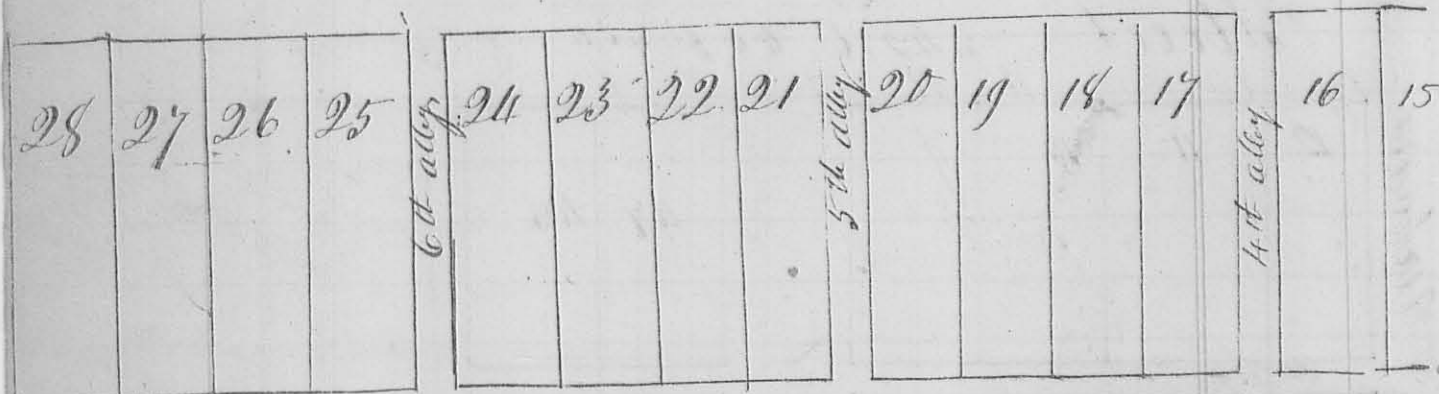 28 27 26 25 6th alley 24 23 22 21 5th alley 20 19 18 17 4th alley 16 15